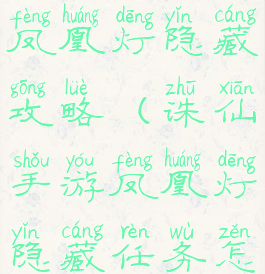 fèng huáng dēng yǐn cáng
凤凰灯隐藏
gōng lüè zhū xiān
攻略(诛仙
shǒu yóu fèng huáng dēng
手游凤凰灯
yǐn cáng rèn wù zěn
隐藏任务怎